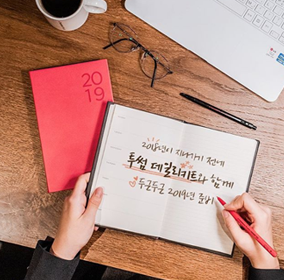 20
19
2018년이 지나가기 전에
투썸 데일리키트와 함께
두근두근 2019년 준비